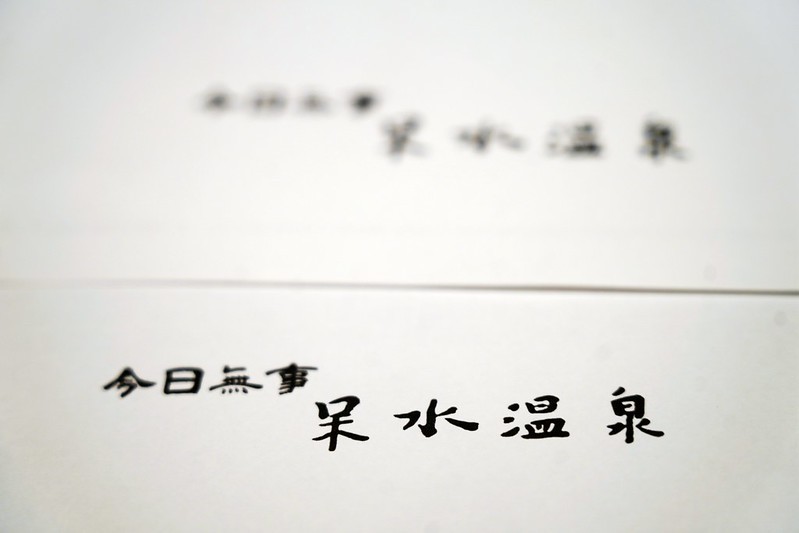 今日無事
呆水温泉
今日無事
呆水温泉